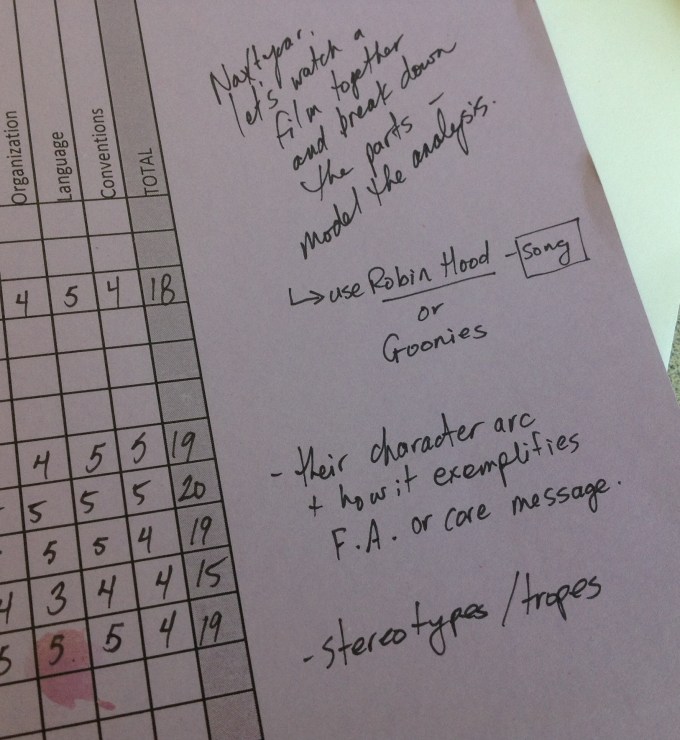 Organization Language Conventions TOTAL
4 5 4 18
4 5 5 19
5 5 5 20
5 5 4 19
4 3 4 4 15
5 5 5 4 19
Next year,
let's watch a
film together
and break down
the parts –
model the analysis.
↳ use Robin Hood - song
or
Goonies
- their character arc
+ how it exemplifies
F.A. or core message.
- stereotypes/tropes